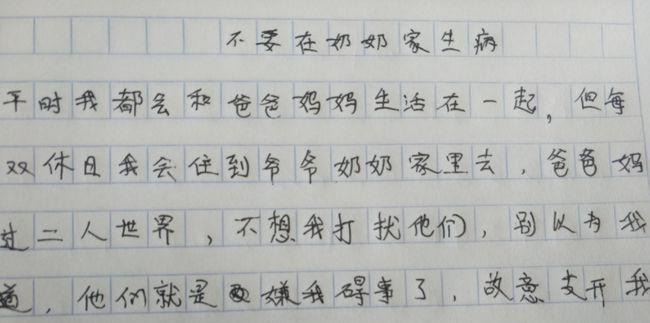 不要在奶奶家生病
平时我都会和爸爸妈妈生活在一起，但每
双休日我会住到爷爷奶奶家里去，爸爸妈
过二人世界，不想我打扰他们，别以为我
道，他们就是嫌我碍事了，故意支开我